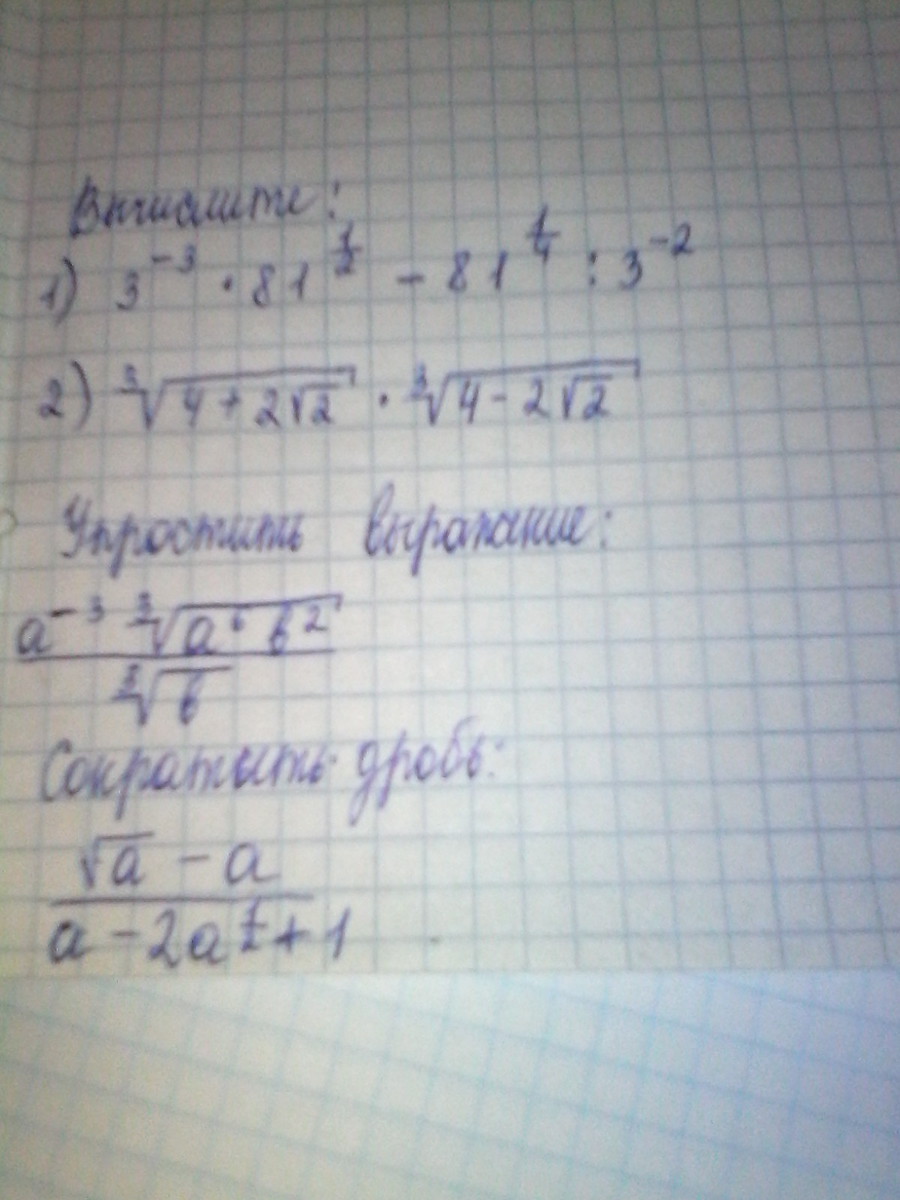 Вычислите:
1) 3⁻³ · 81^(1/2) - 81^(1/4) : 3⁻²
2) ∛(4 + 2√2) · ∛(4 - 2√2)
Упростить выражание:
(a⁻³ ∛(a⁶ b²)) / ∛b
Сократыть дробь:
(√a - a) / (a - 2a^(1/2) + 1)